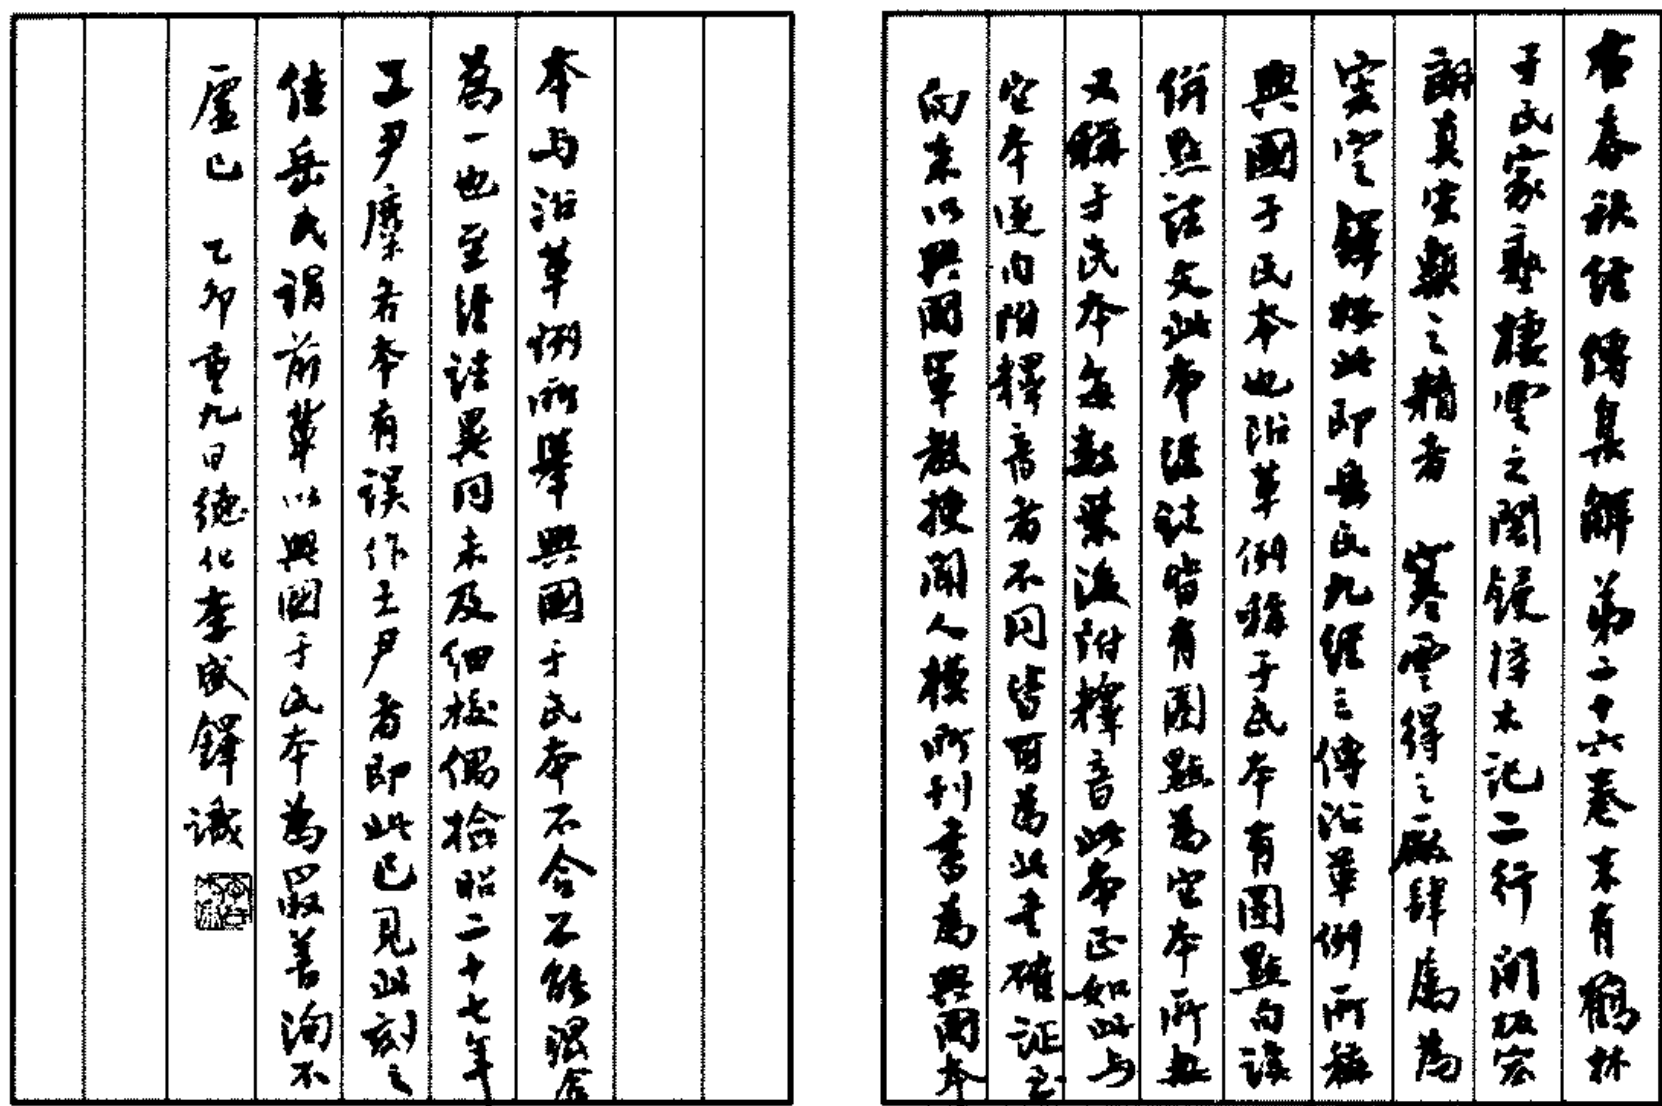 右春秋經傳集解弟二十六卷末有鶴林
于氏家塾棲雲之閣鋟梓木記二行開板宏
朗真宋槧之精者 寒雲得之廠肆屬為
實定鐸按此即岳氏九經三傳沿革例所稱
興國于氏本也沿革例稱于氏本有圈點句讀
併點注文此本經注皆有圈點為它本所無
又稱于氏本每數葉後附釋音此本正如此与
它本逐句附釋音者不同皆可為此書確証至
向來以興國軍教授聞人模所刊書為興國本
本与沿革例所舉興國于氏本不合不能混合
為一也至經注異同未及細校偶檢昭二十七年
工尹麋各本有誤作王尹者即此已見此刻之
佳岳氏謂前輩以興國于氏本為冣善洵不
虛已 乙卯重九日德化李盛鐸識